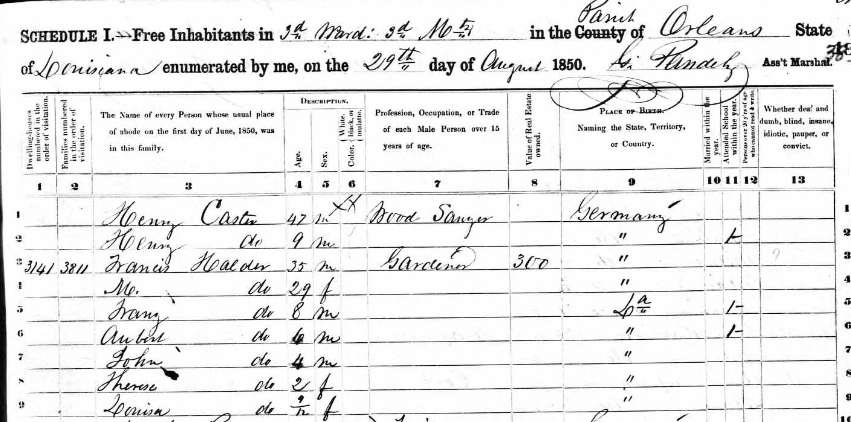 Parish
SCHEDULE I.—Free Inhabitants in 3d Ward: 3d Mty in the County of Orleans State
of Louisiana enumerated by me, on the 29th day of August 1850. Ass't Marshal.
Dwelling-houses numbered in the order of visitation.
Families numbered in the order of visitation.
The Name of every Person whose usual place of abode on the first day of June, 1850, was in this family.
DESCRIPTION.
Age.
Sex.
Color, White, black, or mulatto.
Profession, Occupation, or Trade of each Male Person over 15 years of age.
Value of Real Estate owned.
PLACE OF BIRTH.
Naming the State, Territory, or Country.
Married within the year.
Attended School within the year.
Persons over 20 y'rs of age who cannot read & write.
Whether deaf and dumb, blind, insane, idiotic, pauper, or convict.
1 2 3 4 5 6 7 8 9 10 11 12 13
1 Henry Caster 47 m Wood Sawyer Germany 1
2 Henry do 9 m " 1 2
3 3141 3811 Francis Halder 35 m Gardener 300 " 3
4 M. do 29 f " 4
5 Franz do 8 m La 1 5
6 Aubert do 6 m " 1 6
7 John do 4 m " 7
8 Therese do 2 f " 8
9 Louisa do 9/12 f " 9
10